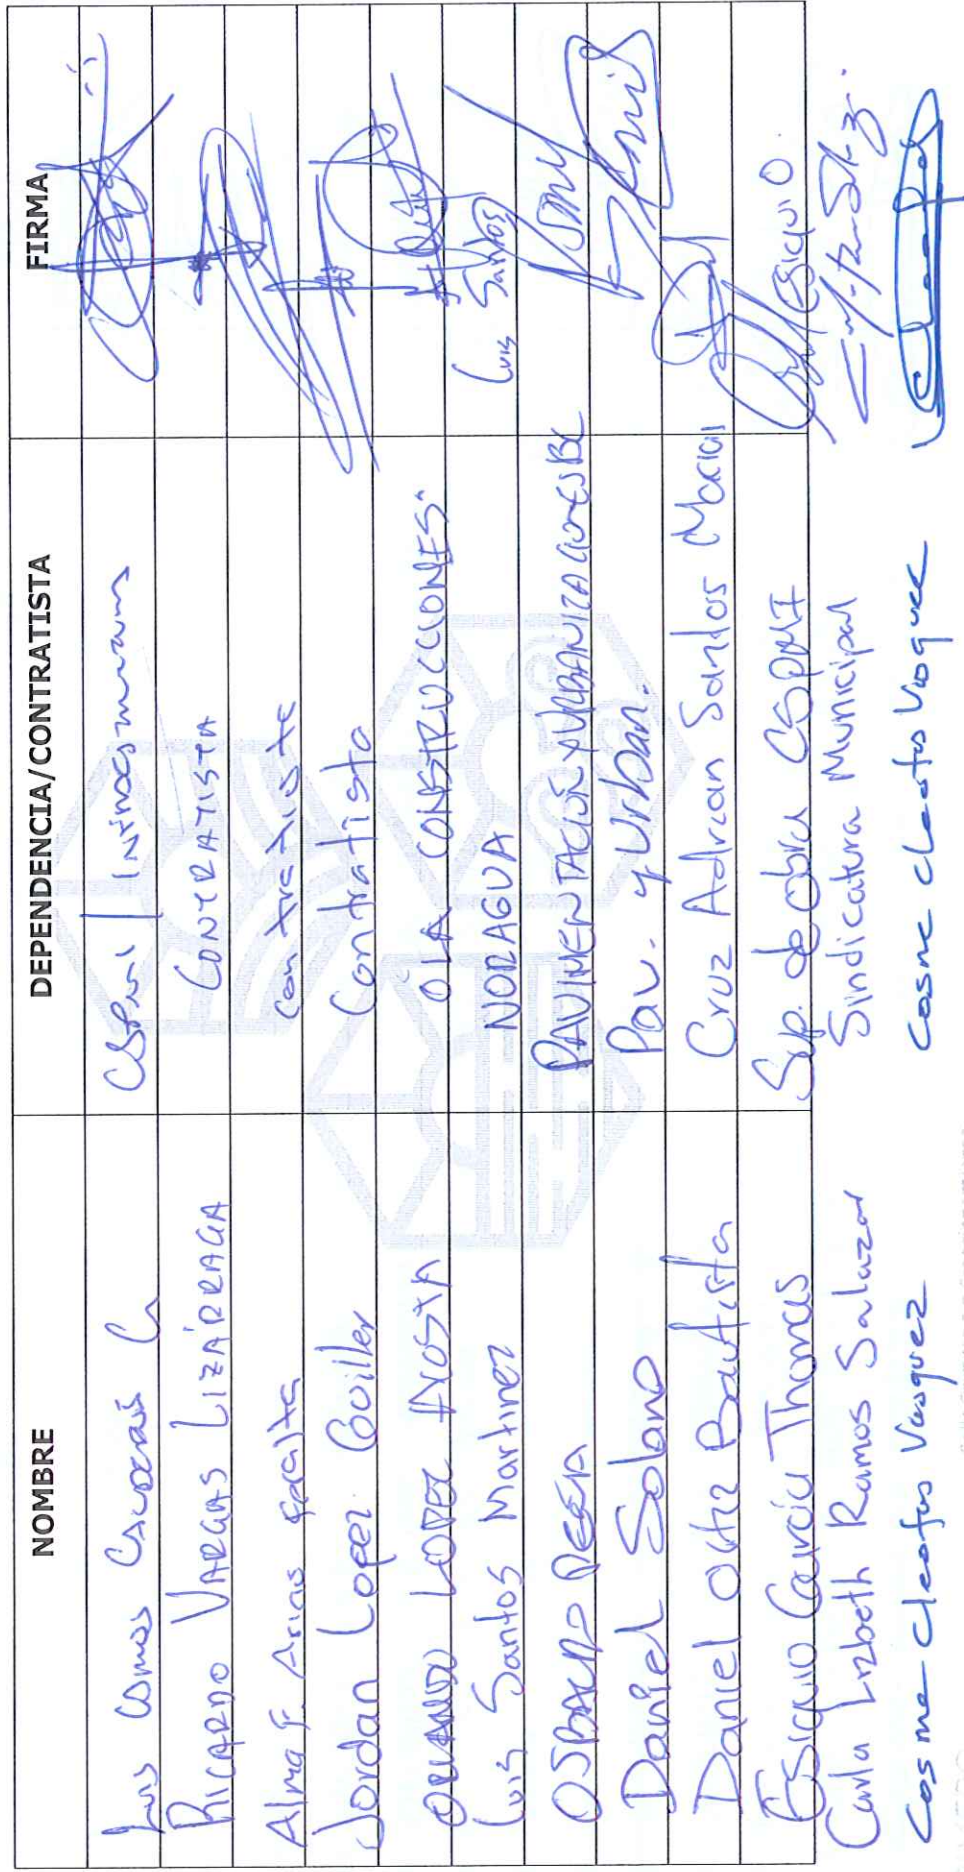 NOMBRE DEPENDENCIA/CONTRATISTA FIRMA
Luis
RICARDO VARGAS LIZÁRRAGA CONTRATISTA
Alma F. Arias Contratista
Jordan Lopez Contratista
ORLANDO LOPEZ ACOSTA OLA CONSTRUCCIONES.
Luis Santos Martinez NORAGUA Luis Santos
OSBALDO PAVIMENTACION Y URBANIZACIONES BC
Daniel Solano Pav. y Urban.
Daniel Ortiz Bautista Cruz Adrean Santos Marcial
Esiquio García Thomas Sup. de obra Esiquio
Carla Lizbeth Ramos Salazar Sindicatura Municipal
Cosme Cleofas Vasquez Cosme Cleofas Vasquez